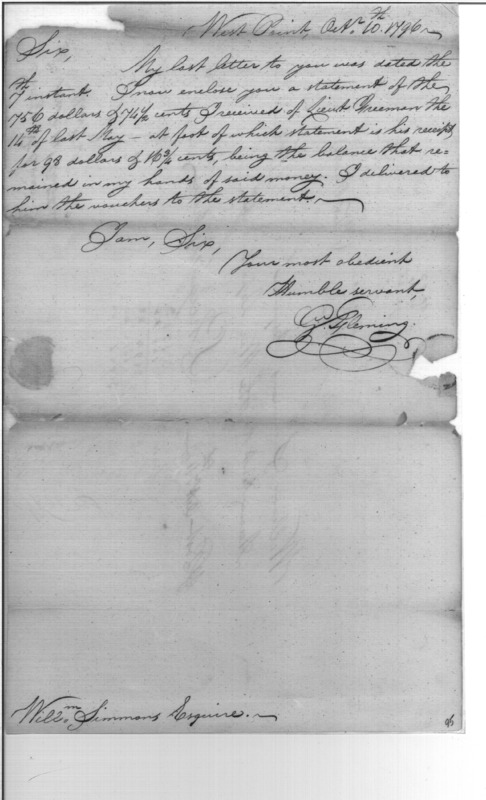 West Point, Octr. 10th. 1796.
Sir,
My last letter to you was dated the
7th instant. I now enclose you a statement of the
756 dollars & 74 cents I received of Lieut Freeman the
14th of last May - at foot of which statement is his receipt,
for 93 dollars & 16¾ cents, being the balance that re-
mained in my hands of said money. I delivered to
him the vouchers to the statement.
I am, Sir,
Your most obedient
Humble servant,
G. Fleming.
Willm. Simmons Esquire.